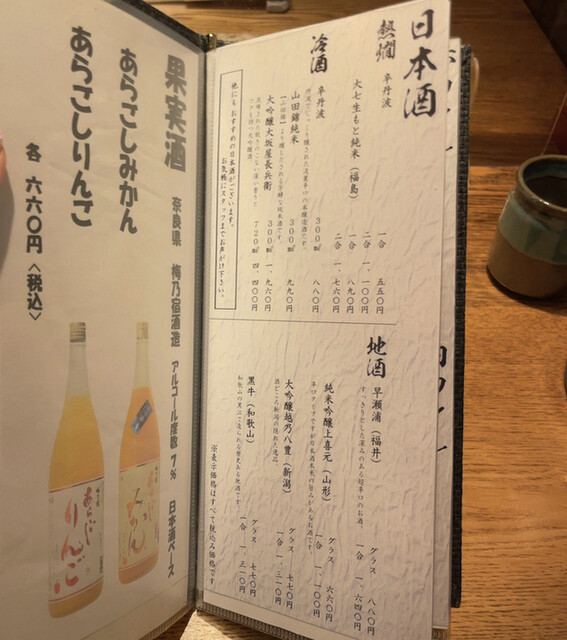 果実酒
奈良県 梅乃宿酒造 アルコール度数7% 日本酒ベース
あらごしみかん
あらごしりんご
各 六六〇円〈税込〉
あらごしりんご
日本酒
熱燗
辛丹波
一合 五五〇円
二合 一、一〇〇円
大七生もと純米(福島)
一合 八九〇円
二合 一、七六〇円
冷酒
辛丹波
300㎖ 八八〇円
山田錦純米
300㎖ 九九〇円
大吟醸大坂屋長兵衛
300㎖ 一、九六〇円
720㎖ 四、四〇〇円
他にも おすすめの日本酒がございます。
お気軽にスタッフまでお声がけ下さい。
地酒
早瀬浦(福井)
すっきりとした深みのある超辛口のお酒。
グラス 八八〇円
一合 一、六四〇円
純米吟醸上喜元(山形)
グラス 六六〇円
一合 一、一〇〇円
大吟醸越乃八豊(新潟)
酒どころ新潟の隠れた逸品
グラス 七七〇円
一合 一、三一〇円
黒牛(和歌山)
グラス 七七〇円
一合 一、三一〇円
※表示価格はすべて税込み価格です